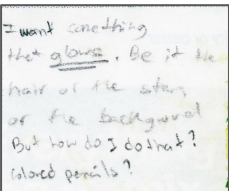 I want something
that glows. Be it the
hair or the stars,
or the background
But how do I do that?
Colored pencils?